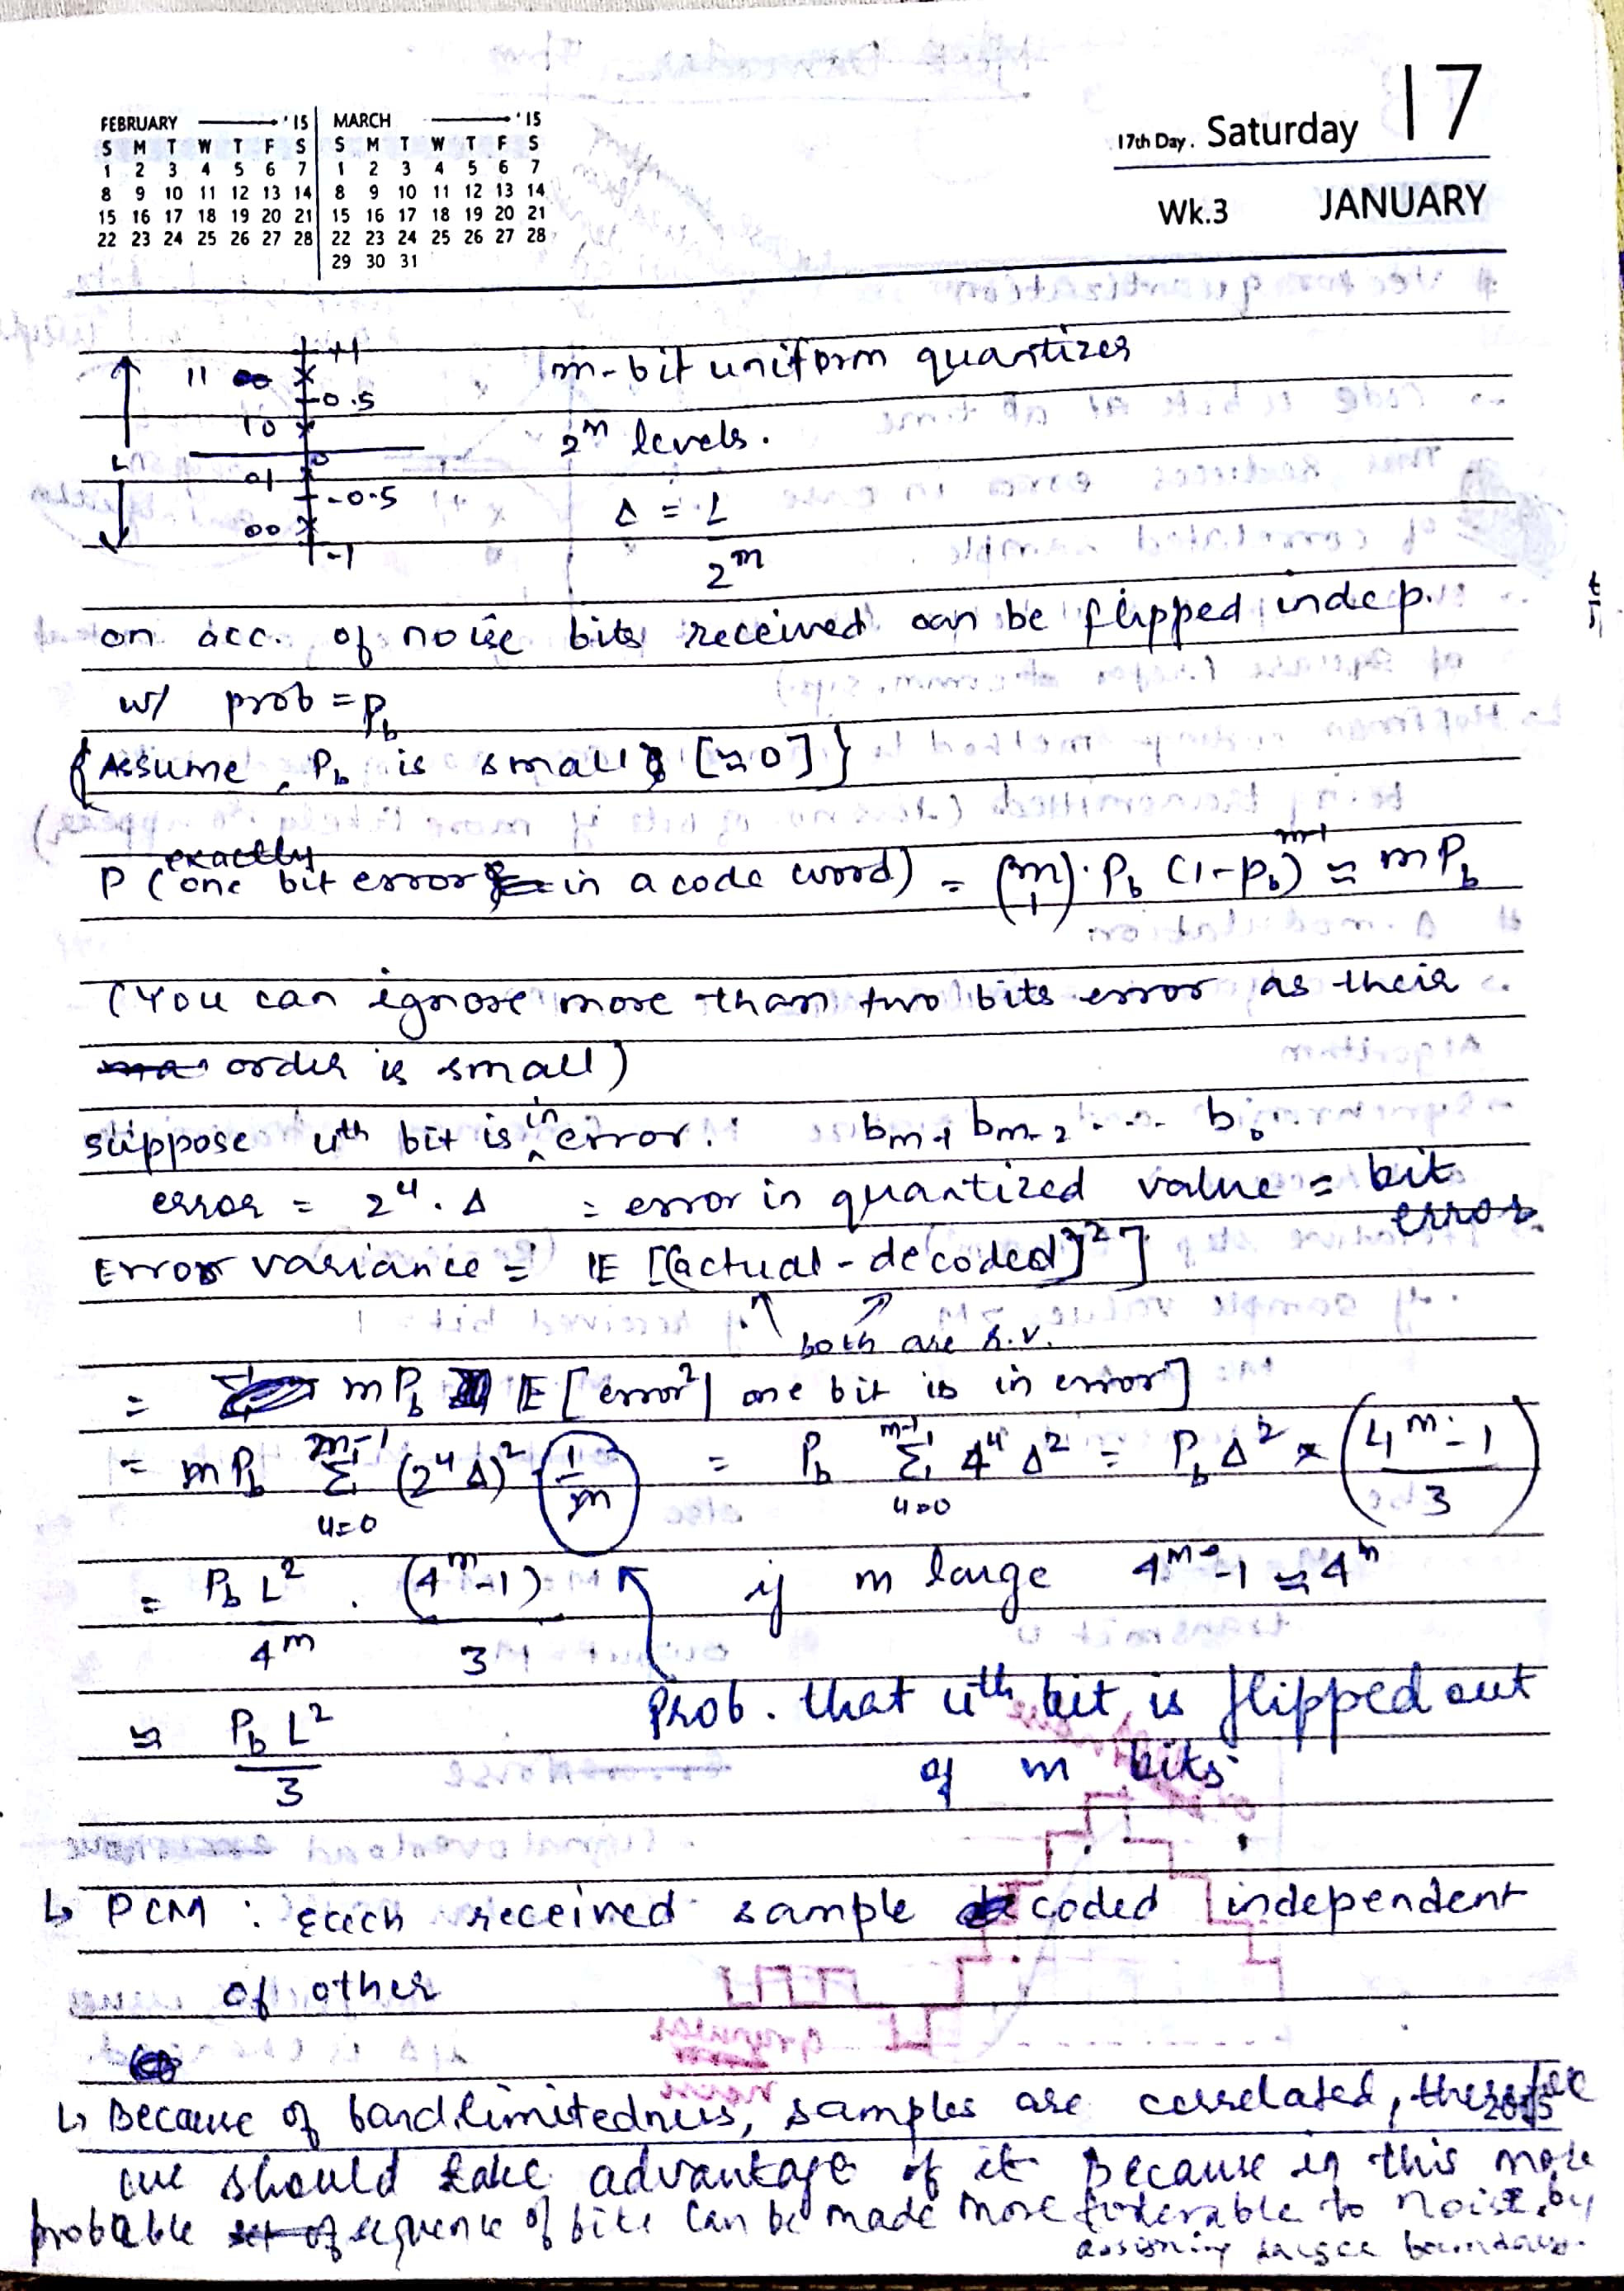 FEBRUARY '15 MARCH '15
S M T W T F S S M T W T F S
1 2 3 4 5 6 7 1 2 3 4 5 6 7
8 9 10 11 12 13 14 8 9 10 11 12 13 14
15 16 17 18 19 20 21 15 16 17 18 19 20 21
22 23 24 25 26 27 28 22 23 24 25 26 27 28
29 30 31
17th Day. Saturday 17
Wk.3 JANUARY
+1
11
0.5
10
L 0
01
-0.5
00
-1
m-bit uniform quantizer
2^m levels.
Δ = L / 2^m
on acc. of noise bits received can be flipped indep.
w/ prob = p_b
{Assume, P_b is small [≈0]}
P (exactly one bit error in a code word) = (m 1) · P_b (1-p_b)^{m-1} ≈ m P_b
(You can ignore more than two bits error as their
order is small)
suppose uth bit is in error. b_{m-1} b_{m-2} ... b_0
error = 2^u . Δ = error in quantized value = bit
error
Error variance = E [(actual - decoded)^2]
both are r.v.
= m P_b E [error^2 | one bit is in error]
= m P_b Σ_{u=0}^{m-1} (2^u Δ)^2 (1/m) = P_b Σ_{u=0}^{m-1} 4^u Δ^2 = P_b Δ^2 × (4^m - 1 / 3)
= P_b L^2 / 4^m . (4^m - 1) / 3 if m large 4^m - 1 ≈ 4^m
Prob. that uth bit is flipped out
≈ P_b L^2 / 3
of m bits
↳ PCM : Each received sample coded independent
of other
↳ Because of bandlimitedness, samples are correlated, therefore
2015
we should take advantage of it Because in this more
probable sequence of bits can be made more tolerable to noise by
assigning larger boundary.